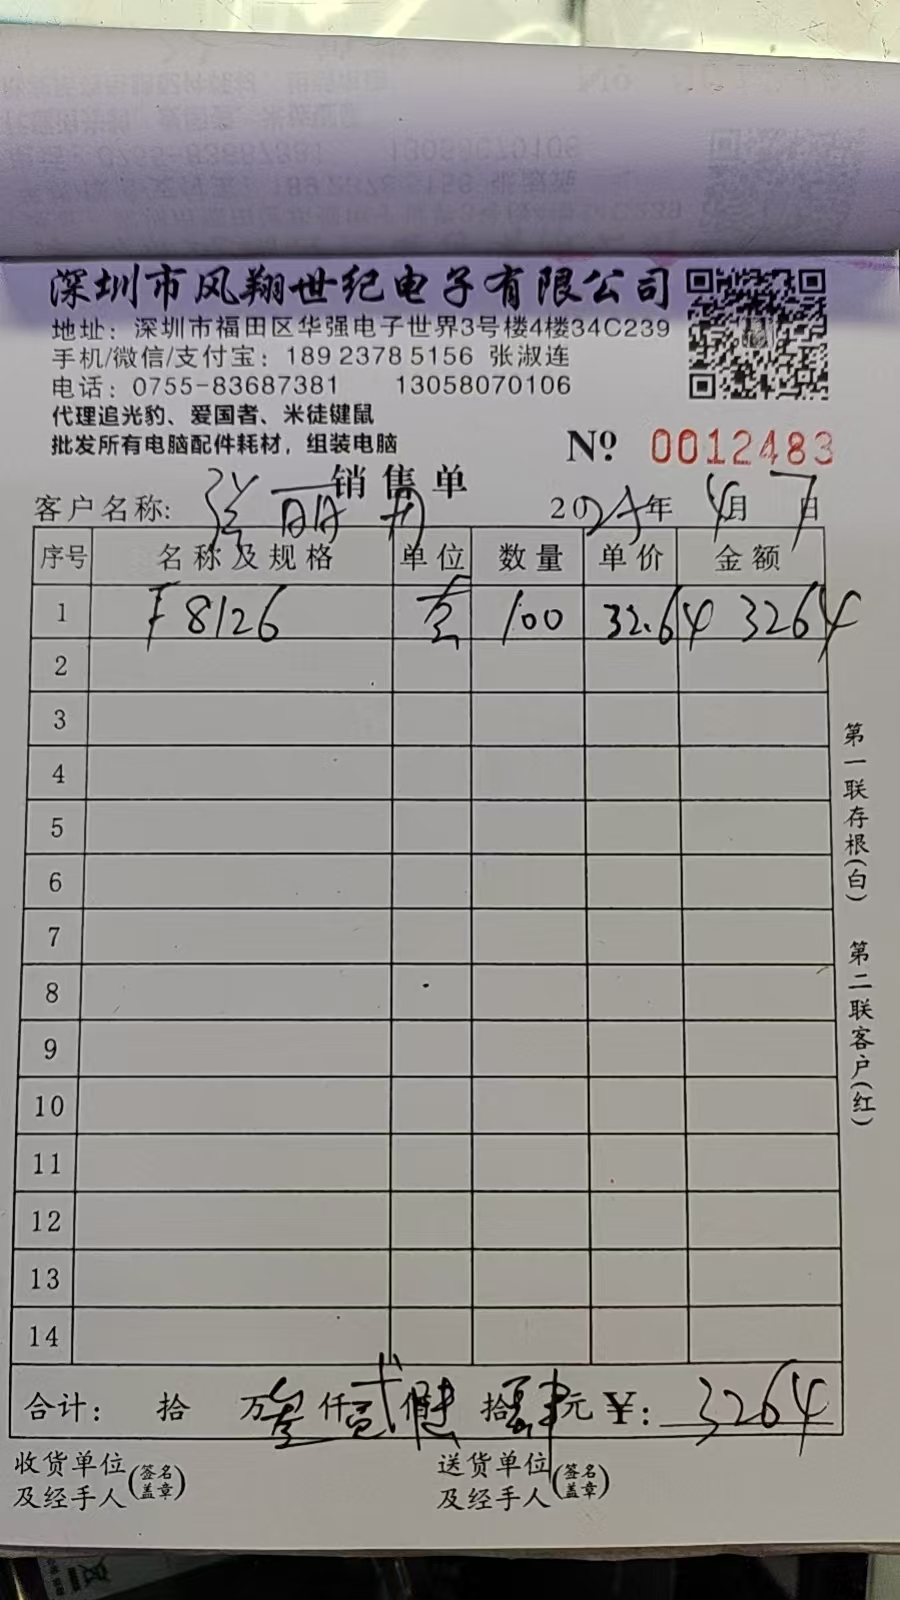 深圳市风翔世纪电子有限公司
地址：深圳市福田区华强电子世界3号楼4楼34C239
手机/微信/支付宝：189 2378 5156 张淑连
电话：0755-83687381 13058070106
代理追光豹、爱国者、米徒键鼠
批发所有电脑配件耗材，组装电脑
Nº 0012483
销售单
客户名称： 张 2025年4月7日
序号 名称及规格 单位 数量 单价 金额
1 F8126 套 100 32.64 3264
2
3
4
5
6
7
8
9
10
11
12
13
14
合计： 拾 万叁仟贰佰陆拾肆元 ¥：3264
收货单位及经手人(签名盖章) 送货单位及经手人(签名盖章)
第一联存根(白) 第二联客户(红)